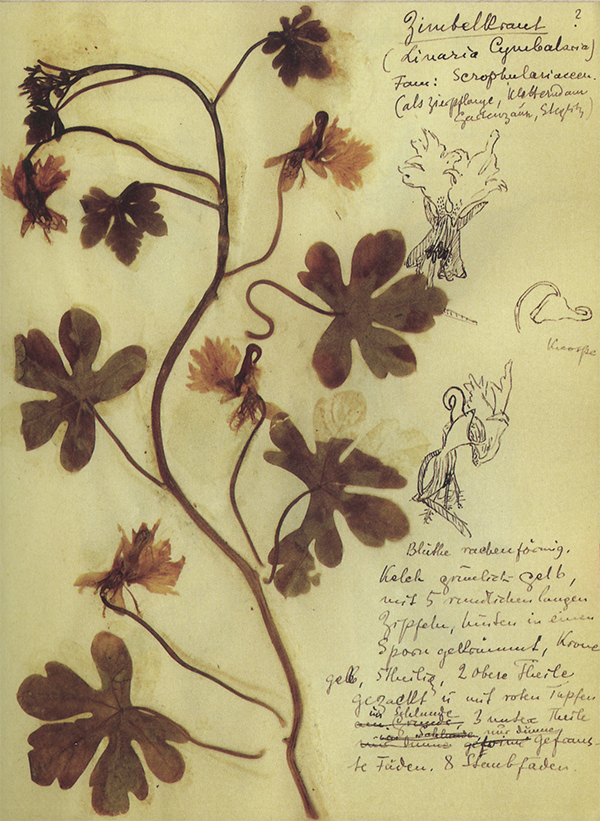 2
Zimbelkraut
(Linaria Cymbalaria)
Fam: Scrophulariaceen.
(als Zierpflanze, Kletternd am
Gartenzaun, Steglitz)
Knospe
Blüthe rachenförmig.
Kelch grünlich gelb,
mit 5 rundlichen langen
Zipfeln, hinten in einen
Sporn gekrümmt, Krone
gelb, 5theilig, 2 obere Theile
gezackt u mit roten Tupfen
im Schlunde
3 untere Theile
nur dünne
gefrans-
te Fäden. 8 Staubfäden.